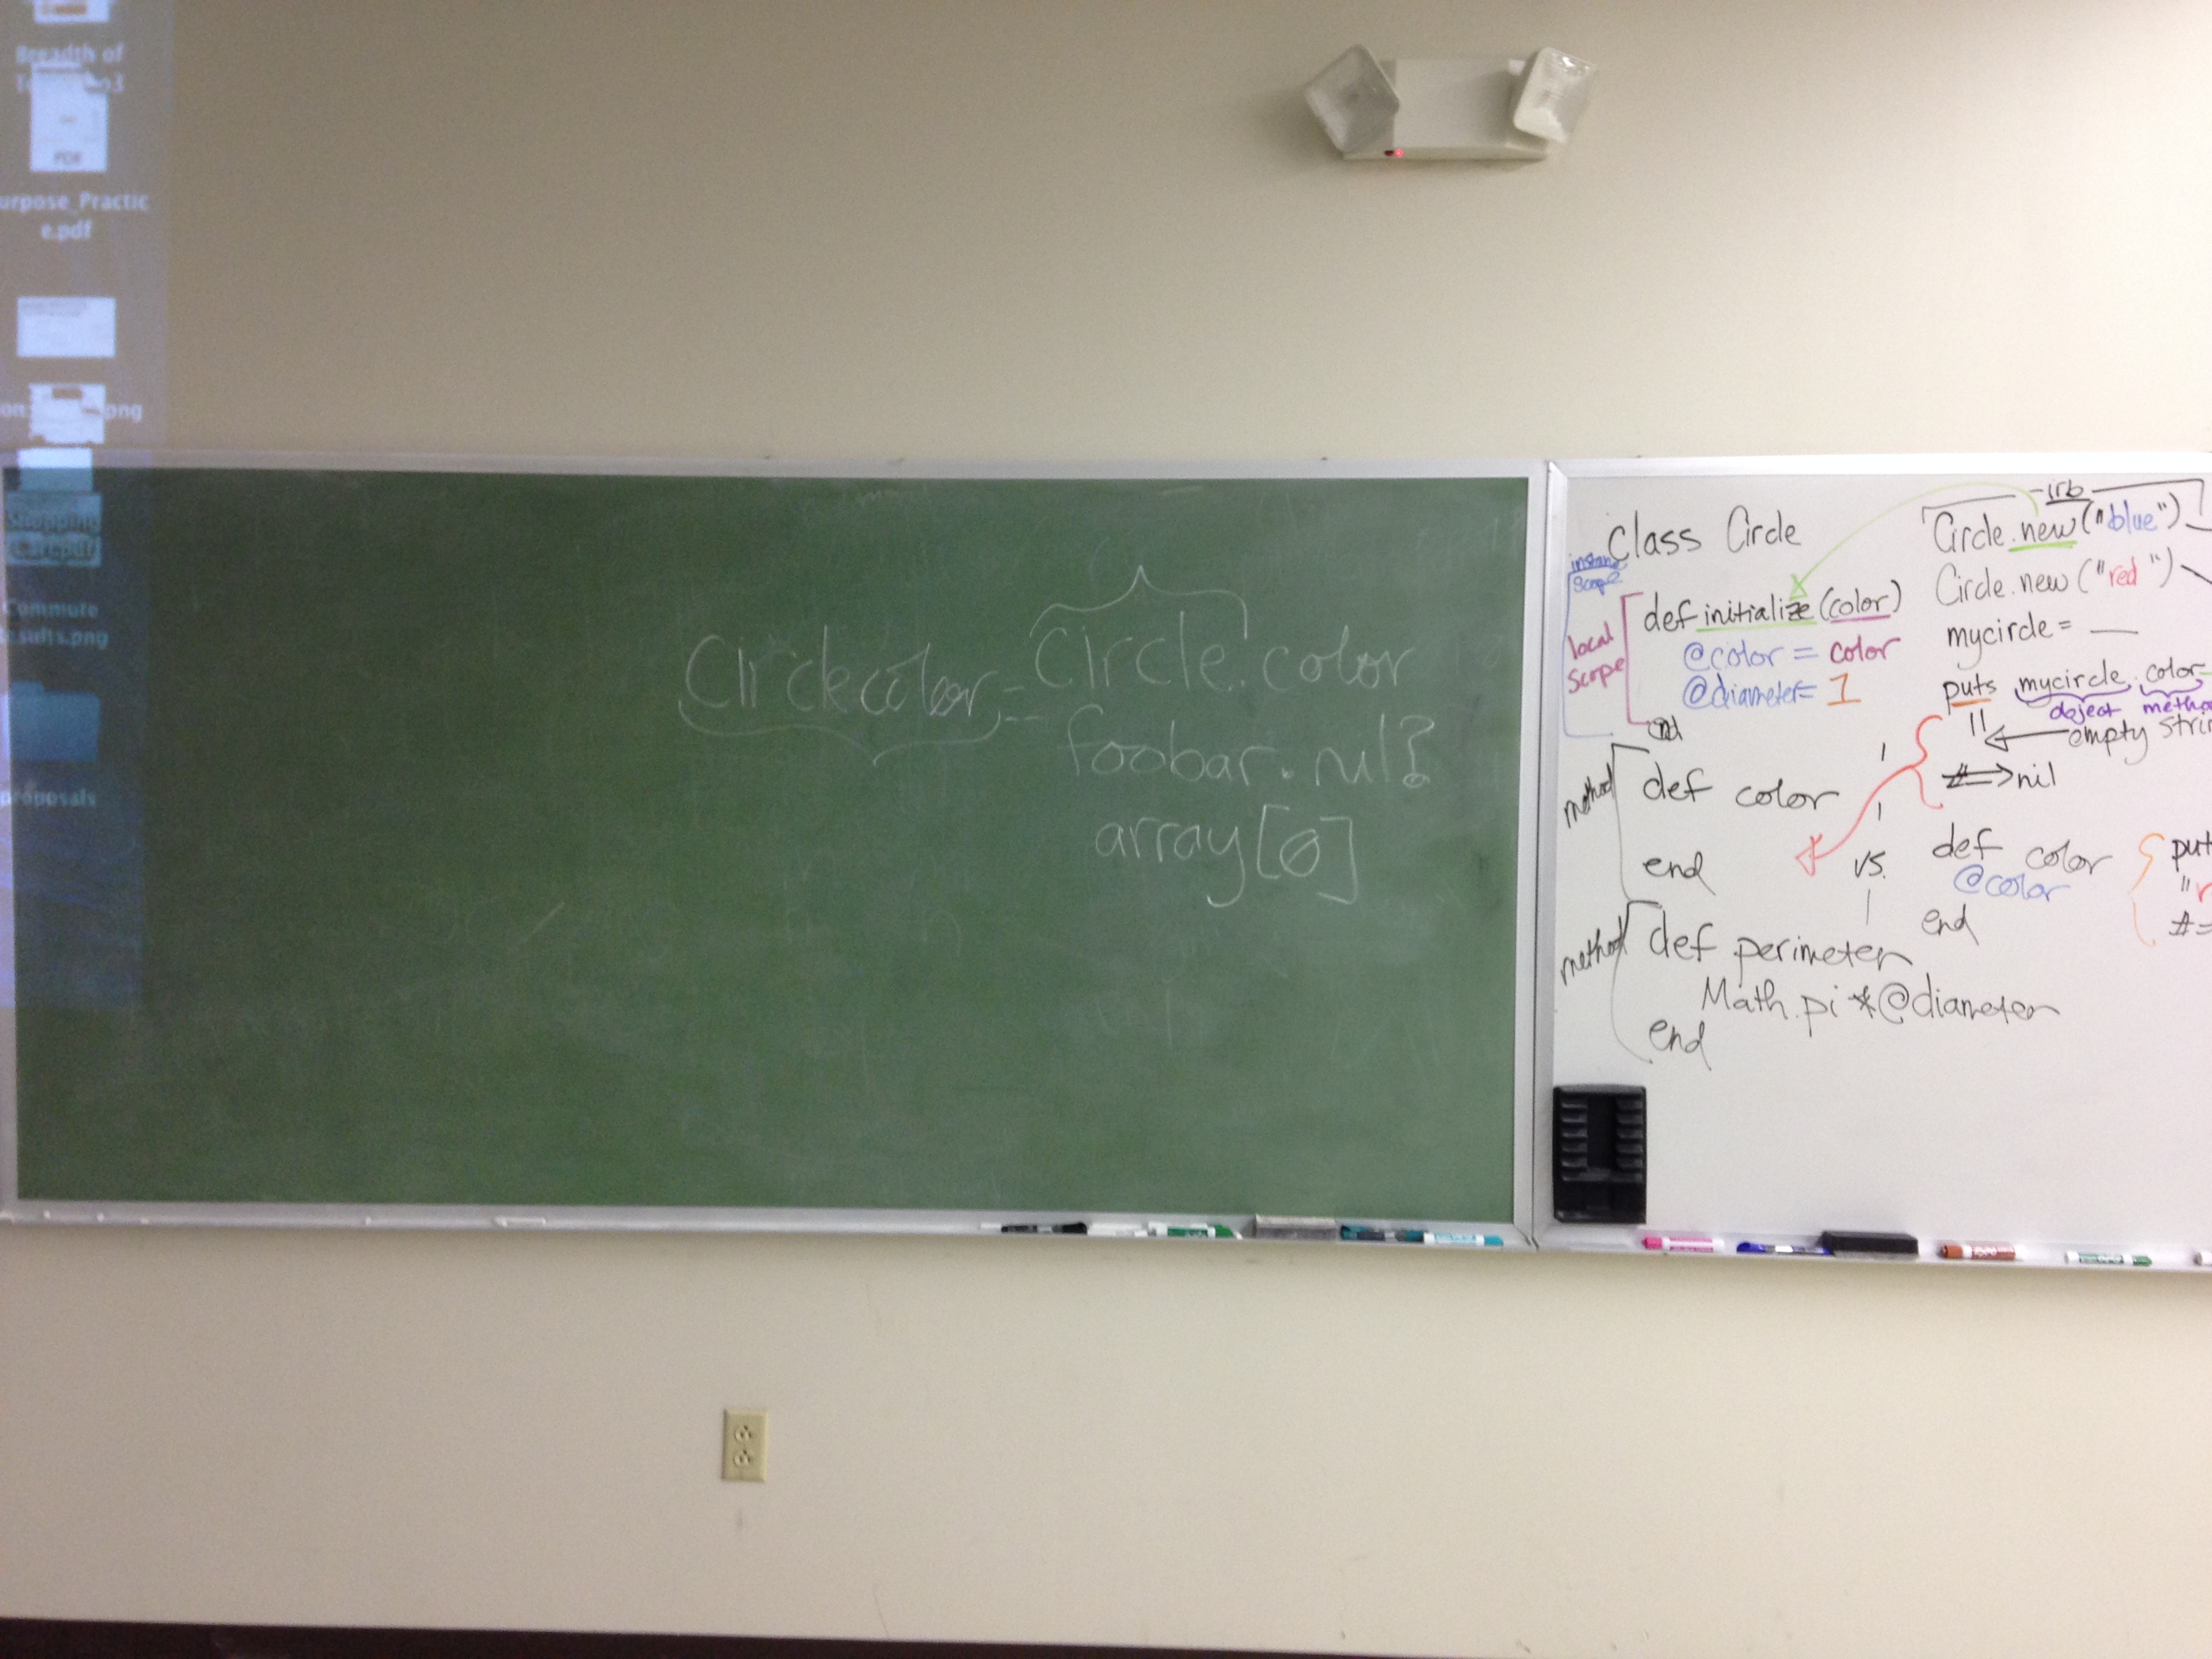 Breadth of
PDF
urpose_Practic
e.pdf
png
Shopping
Commute
sults.png
proposals
Circle color = Circle.color
foobar.nil?
array[0]
class Circle
instance
scope
local
scope
def initialize (color)
@color = color
@diameter= 1
end
method
def color
end
method
def perimeter
Math.pi * @diameter
end
irb
Circle.new ("blue")
Circle.new ("red")
mycircle = __
puts mycircle.color
object
empty
=> nil
vs.
def color
@color
end